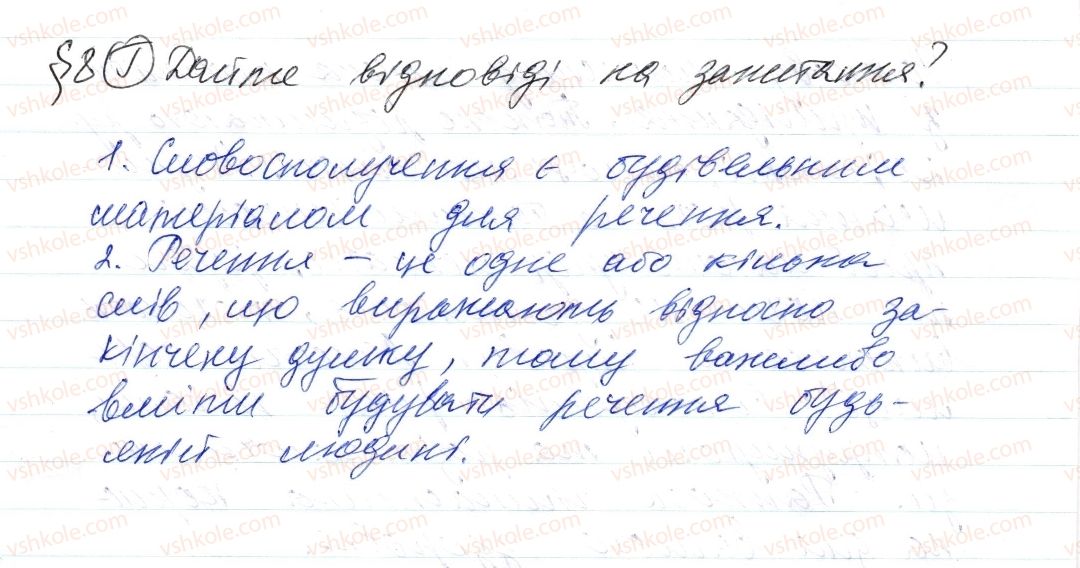 §8 I Дайте відповіді на запитання?
1. Словосполучення є будівельним
матеріалом для речення.
2. Речення – це одне або кілька
слів, що виражають відносно за-
кінчену думку, тому важливо
вміти будувати речення будь-
якій людині.